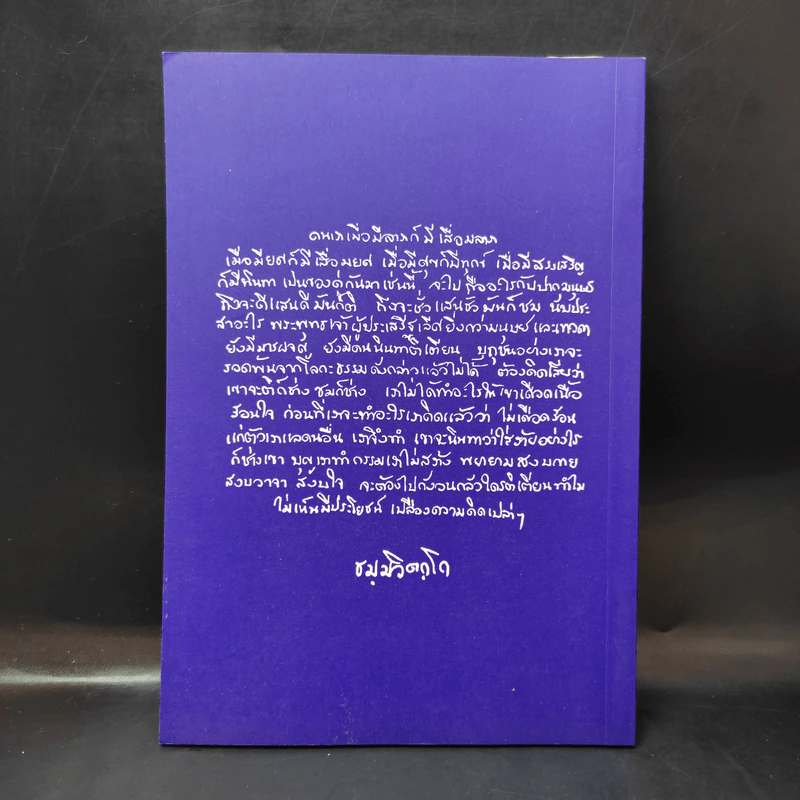 คนเราเมื่อมีลาภก็มีเสื่อมลาภ
เมื่อมียศก็มีเสื่อมยศ เมื่อมีสุขก็มีทุกข์ เมื่อมีสรรเสริญ
ก็มีนินทา เป็นของคู่กันมาเช่นนี้ จะไปถืออะไรกับปากมนุษย์
ถึงจะดีแสนดีมันก็ติ ถึงจะชั่วแสนชั่วมันก็ชม นับประ
สาอะไร พระพุทธเจ้าผู้ประเสริฐเลิศยิ่งกว่ามนุษย์และเทวดา
ยังมีมารผจญ ยังมีคนนินทาติเตียน ปุถุชนอย่างเราจะ
รอดพ้นจากโลกะธรรมดังกล่าวแล้วไม่ได้ ต้องคิดเสียว่า
เขาจะติก็ช่าง ชมก็ช่าง เราไม่ได้ทำอะไรให้เขาเดือดเนื้อ
ร้อนใจ ก่อนที่เราจะทำอะไรเราคิดแล้วว่า ไม่เดือดร้อน
แก่ตัวเราและคนอื่น เราจึงทำ เขาจะนินทาว่าใส่ร้ายอย่างไร
ก็ช่างเขา บุญเราทำ กรรมเราไม่สร้าง พยายามสงบกาย
สงบวาจา สงบใจ จะต้องไปกังวนกลัวใครติเตียนทำไม
ไม่เห็นมีประโยชน์ เปลืองความคิดเปล่าๆ
ธมฺมวิตกฺโก